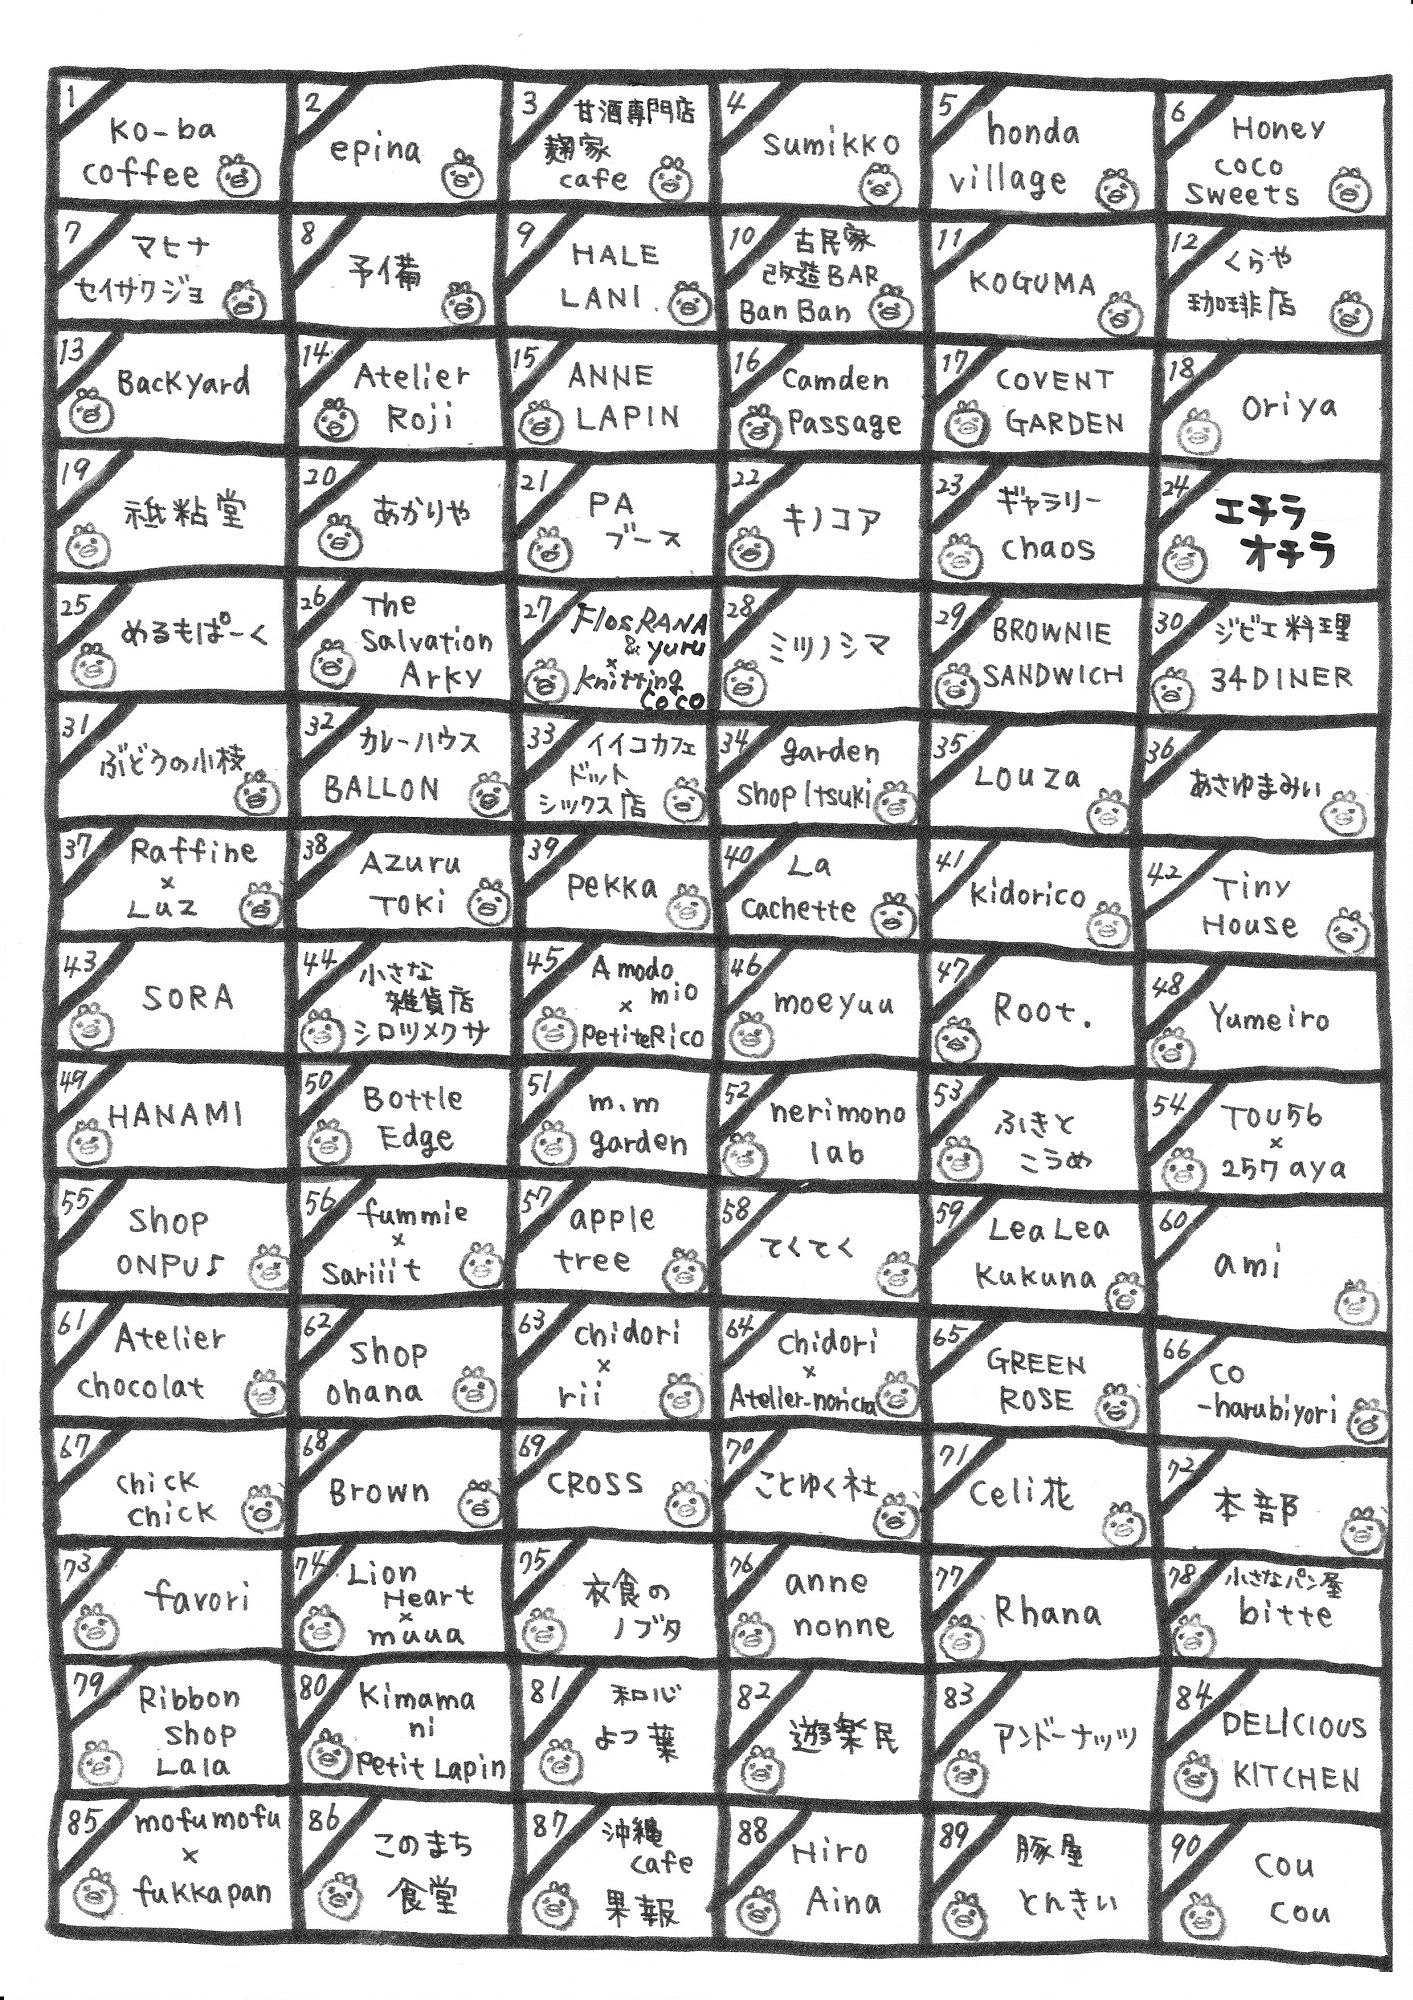 1
ko-ba
coffee
2
epina
3
甘酒専門店
麹家
cafe
4
sumikko
5
honda
village
6
Honey
coco
sweets
7
マヒナ
セイサクジョ
8
予備
9
HALE
LANI
10
古民家
改造BAR
Ban Ban
11
KOGUMA
12
くらや
珈琲店
13
Backyard
14
Atelier
Roji
15
ANNE
LAPIN
16
Camden
Passage
17
COVENT
GARDEN
18
Oriya
19
祗粘堂
20
あかりや
21
PA
ブース
22
キノコア
23
ギャラリー
chaos
24
エチラ
オチラ
25
めるもぱーく
26
The
Salvation
Arky
27
FlosRANA
& yuru
×
knitting
coco
28
ミツノシマ
29
BROWNIE
SANDWICH
30
ジビエ料理
34DINER
31
ぶどうの小枝
32
カレーハウス
BALLON
33
イイコカフェ
ドット
シックス店
34
garden
shop Itsuki
35
Louza
36
あさゆまみい
37
Raffine
×
Luz
38
Azuru
Toki
39
pekka
40
La
cachette
41
kidorico
42
Tiny
House
43
SORA
44
小さな
雑貨店
シロツメクサ
45
A modo
mio
×
PetiteRico
46
moeyuu
47
Root.
48
Yumeiro
49
HANAMI
50
Bottle
Edge
51
m.m
garden
52
nerimono
lab
53
ふきと
こうめ
54
TOU56
×
257 aya
55
shop
ONPU♪
56
fummie
×
sariiit
57
apple
tree
58
てくてく
59
Lea Lea
Kukuna
60
ami
61
Atelier
chocolat
62
shop
ohana
63
chidori
×
rii
64
chidori
×
Atelier-noricra
65
GREEN
ROSE
66
co
-harubiyori
67
chick
chick
68
Brown
69
CROSS
70
ことゆく社
71
Celi花
72
本部
73
favori
74
Lion
Heart
×
muua
75
衣食の
ノブタ
76
anne
nonne
77
Rhana
78
小さなパン屋
bitte
79
Ribbon
shop
Lala
80
Kimama
ni
Petit Lapin
81
和心
よつ葉
82
遊楽民
83
アンドーナッツ
84
DELICIOUS
KITCHEN
85
mofumofu
×
fukkapan
86
このまち
食堂
87
沖縄
cafe
果報
88
Hiro
Aina
89
豚屋
とんきい
90
cou
cou